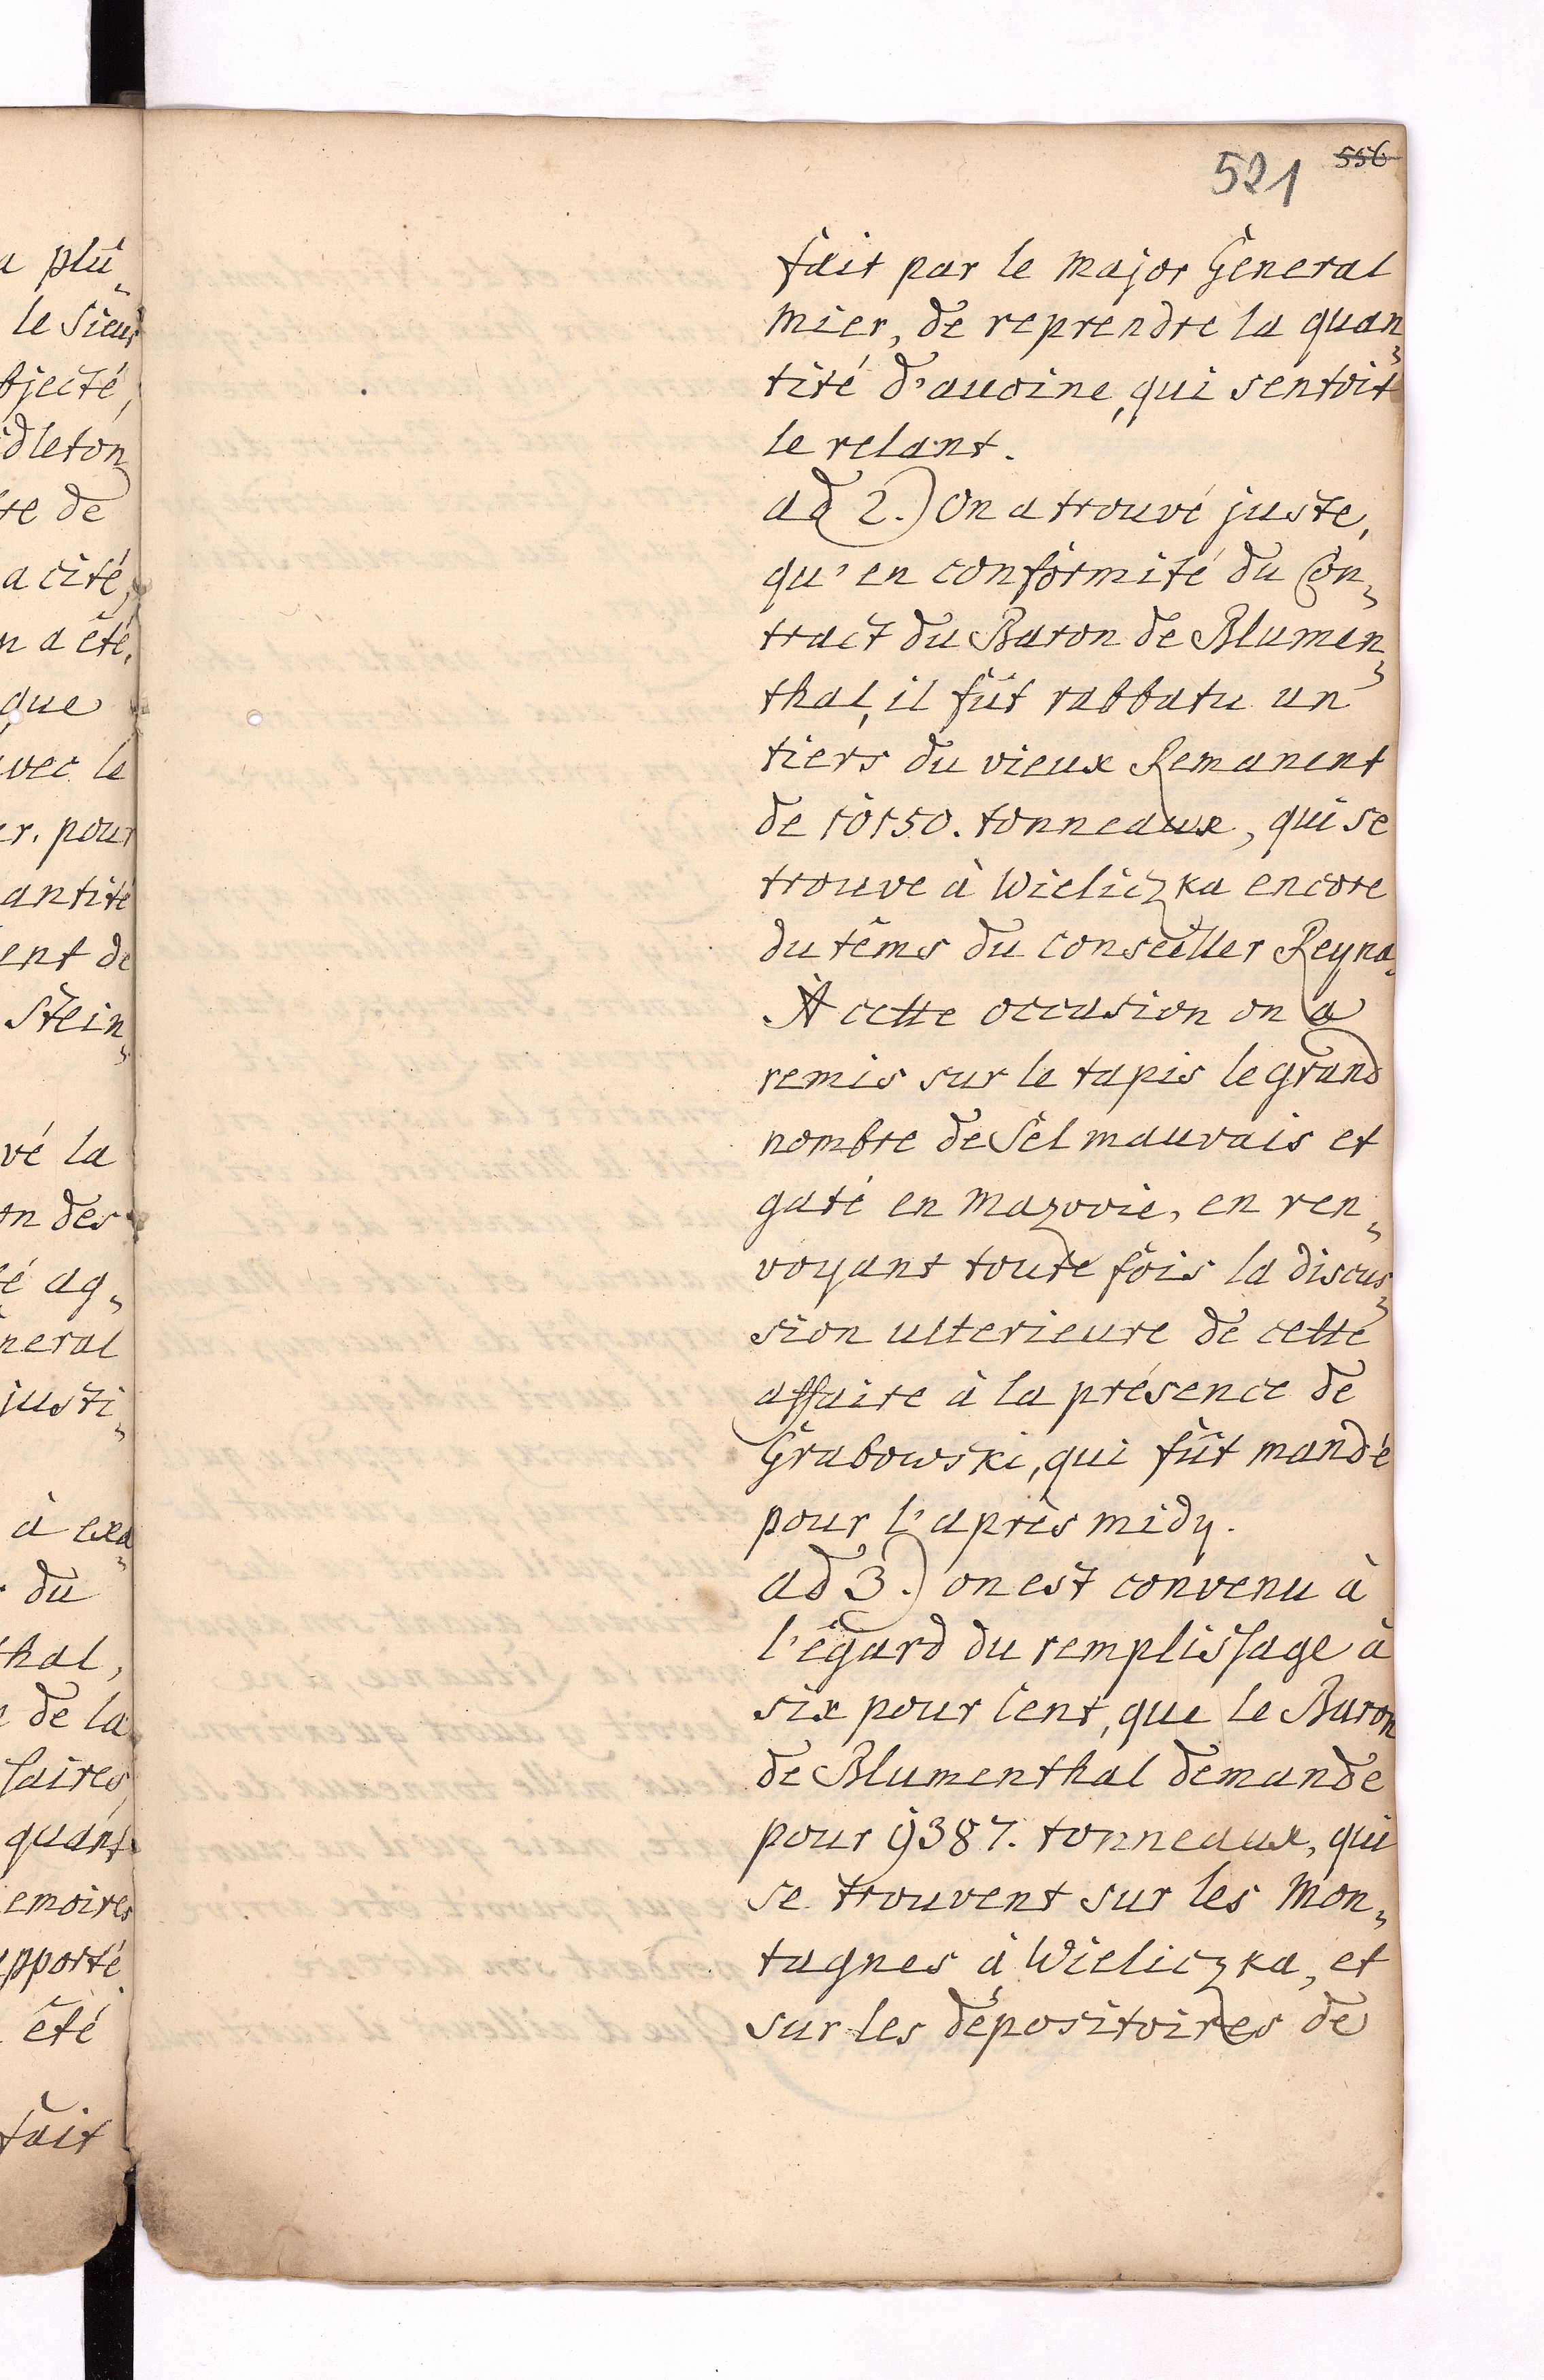 a plu„
le Sieur
bjecté,
idleton
re de
a cité,
n a été,
que
vec le
er. pour
antité
ent de
Stein„
vé la
on des
é ag„
neral
justi„
à exa„
du
thal,
de la
saires,
quant
emoires
pporté
été
fait
521 556
fait par le Major General
Mier, de reprendre la quan„
tité d'avoine, qui sentoit
le relant.
ad 2.) On a trouvé juste,
qu'en conformité du Con„
tract du Baron de Blumen„
thal, il fût rabbatu un
tiers du vieux Remanent
de 10150. tonneaux, qui se
trouve à Wieliczka encore
du têms du Conseiller Reyna.
A cette occasion on a
remis sur le tapis le grand
nombre de Sel mauvais et
gaté en Mazovie, en ren„
voyant toute fois la discus„
sion ulterieure de cette
affaire à la présence de
Grabowski, qui fût mandé
pour l'après midy.
ad 3.) on est convenu à
l'égard du remplissage à
six pour Cent, que le Baron
de Blumenthal demande
pour 9387. tonneaux, qui
se trouvent sur les Mon„
tagnes à Wieliczka, et
sur les dépositoires de